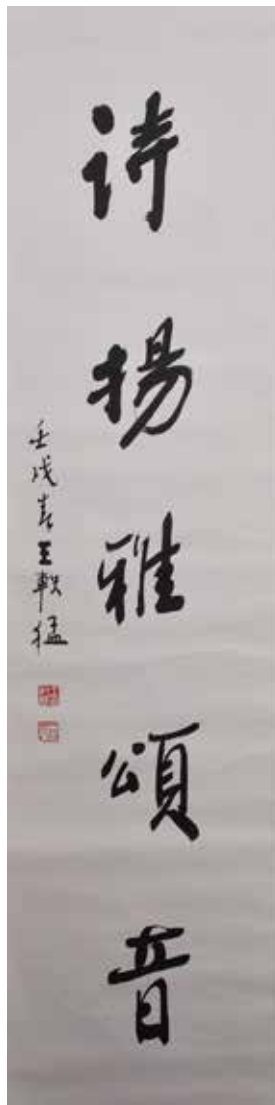 詩揚雅頌音
壬戌春王軼猛